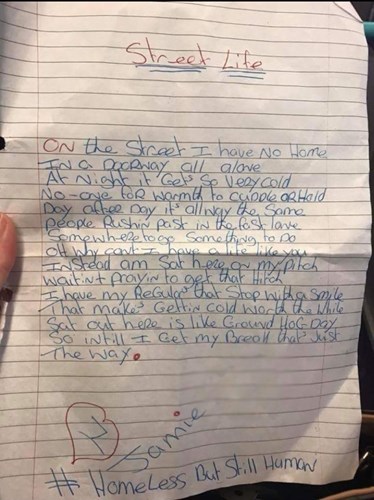 Street Life
ON the Street I have No Home
IN a DOORWAY all alone
At Night it Gets So Very cold
No-one for warmth to cuddle OR Hold
Day after Day it's allway the Same
people Rushin past in the fast lane
Somewhere to go Something to do
oh why cant I have a life like you
INStead am Sat here on my pitch
waitint prayin to get that Hitch
I have my ReGulars that Stop with a Smile
That makes Gettin cold worth the while
Sat out here is like Ground HoG Day
So intill I Get my Break that's Just
The way.
Jamie
# HOMELESS But Still HUMAN